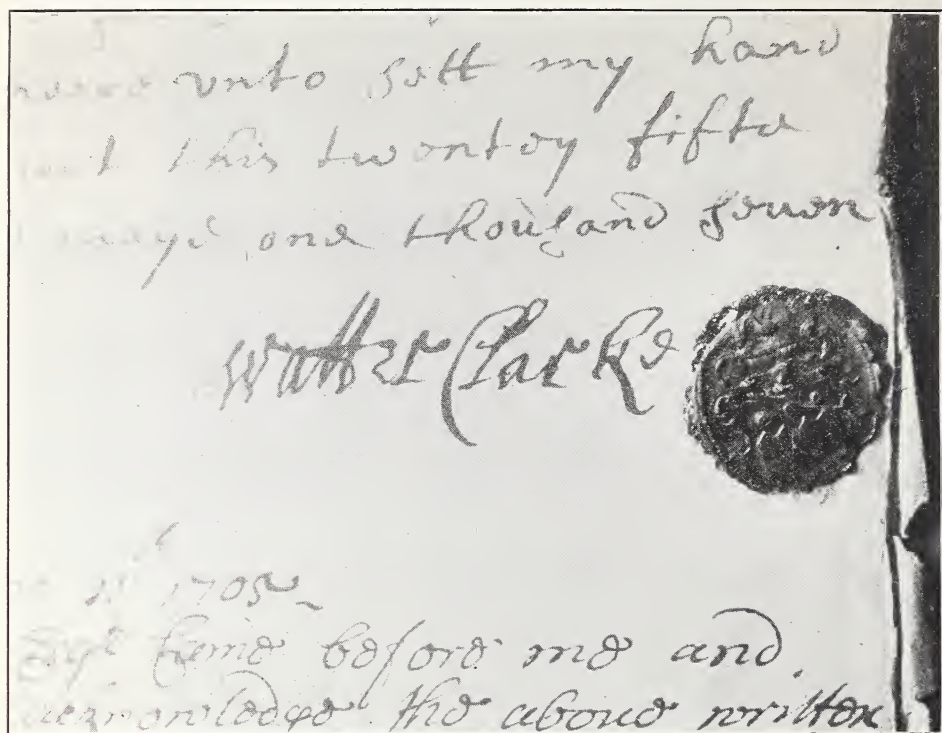 vnto sett my hand
this twentey fifte
one thousand seuen
Walter Clarke
1705
Came before me and
acknowledge the aboue written